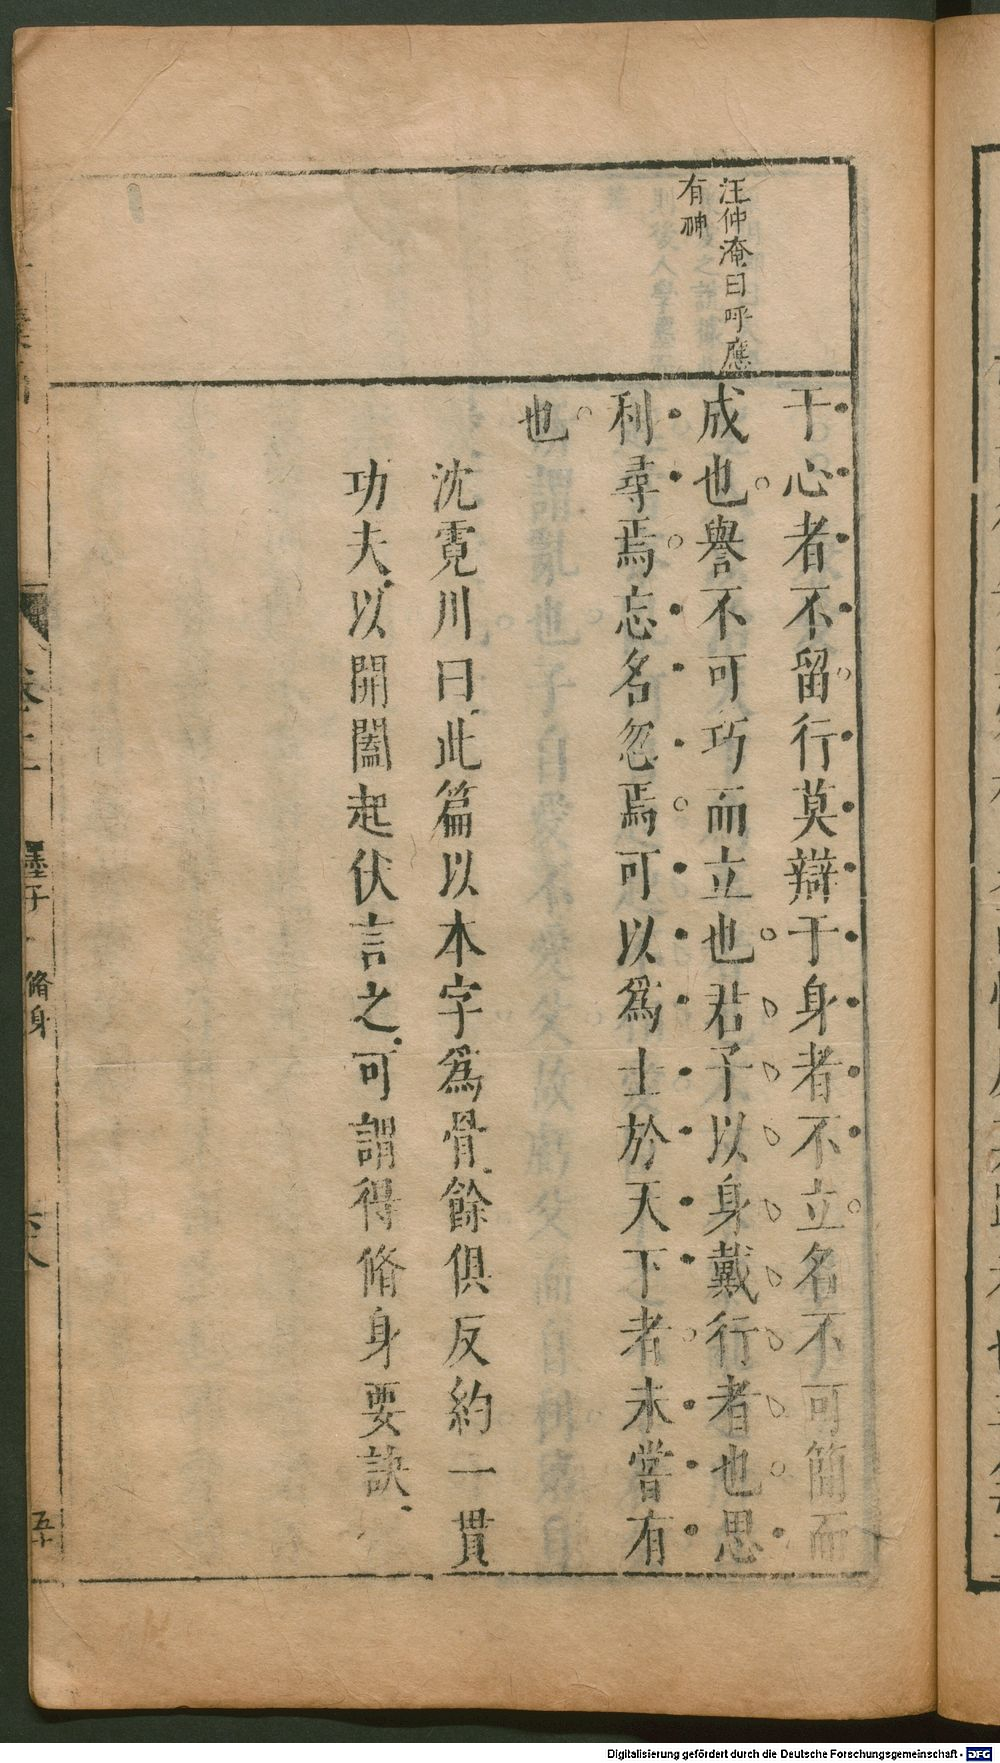 汪仲淹曰呼應
有神
于心者不留行莫辯于身者不立名不可簡而
成也譽不可巧而立也君子以身戴行者也思
利尋焉忘名忽焉可以爲士於天下者未嘗有
也
沈霓川曰此篇以本字爲骨餘俱反約一貫
功夫以開闔起伏言之可謂得脩身要訣
墨子 脩身
Digitalisierung gefördert durch die Deutsche Forschungsgemeinschaft - DFG